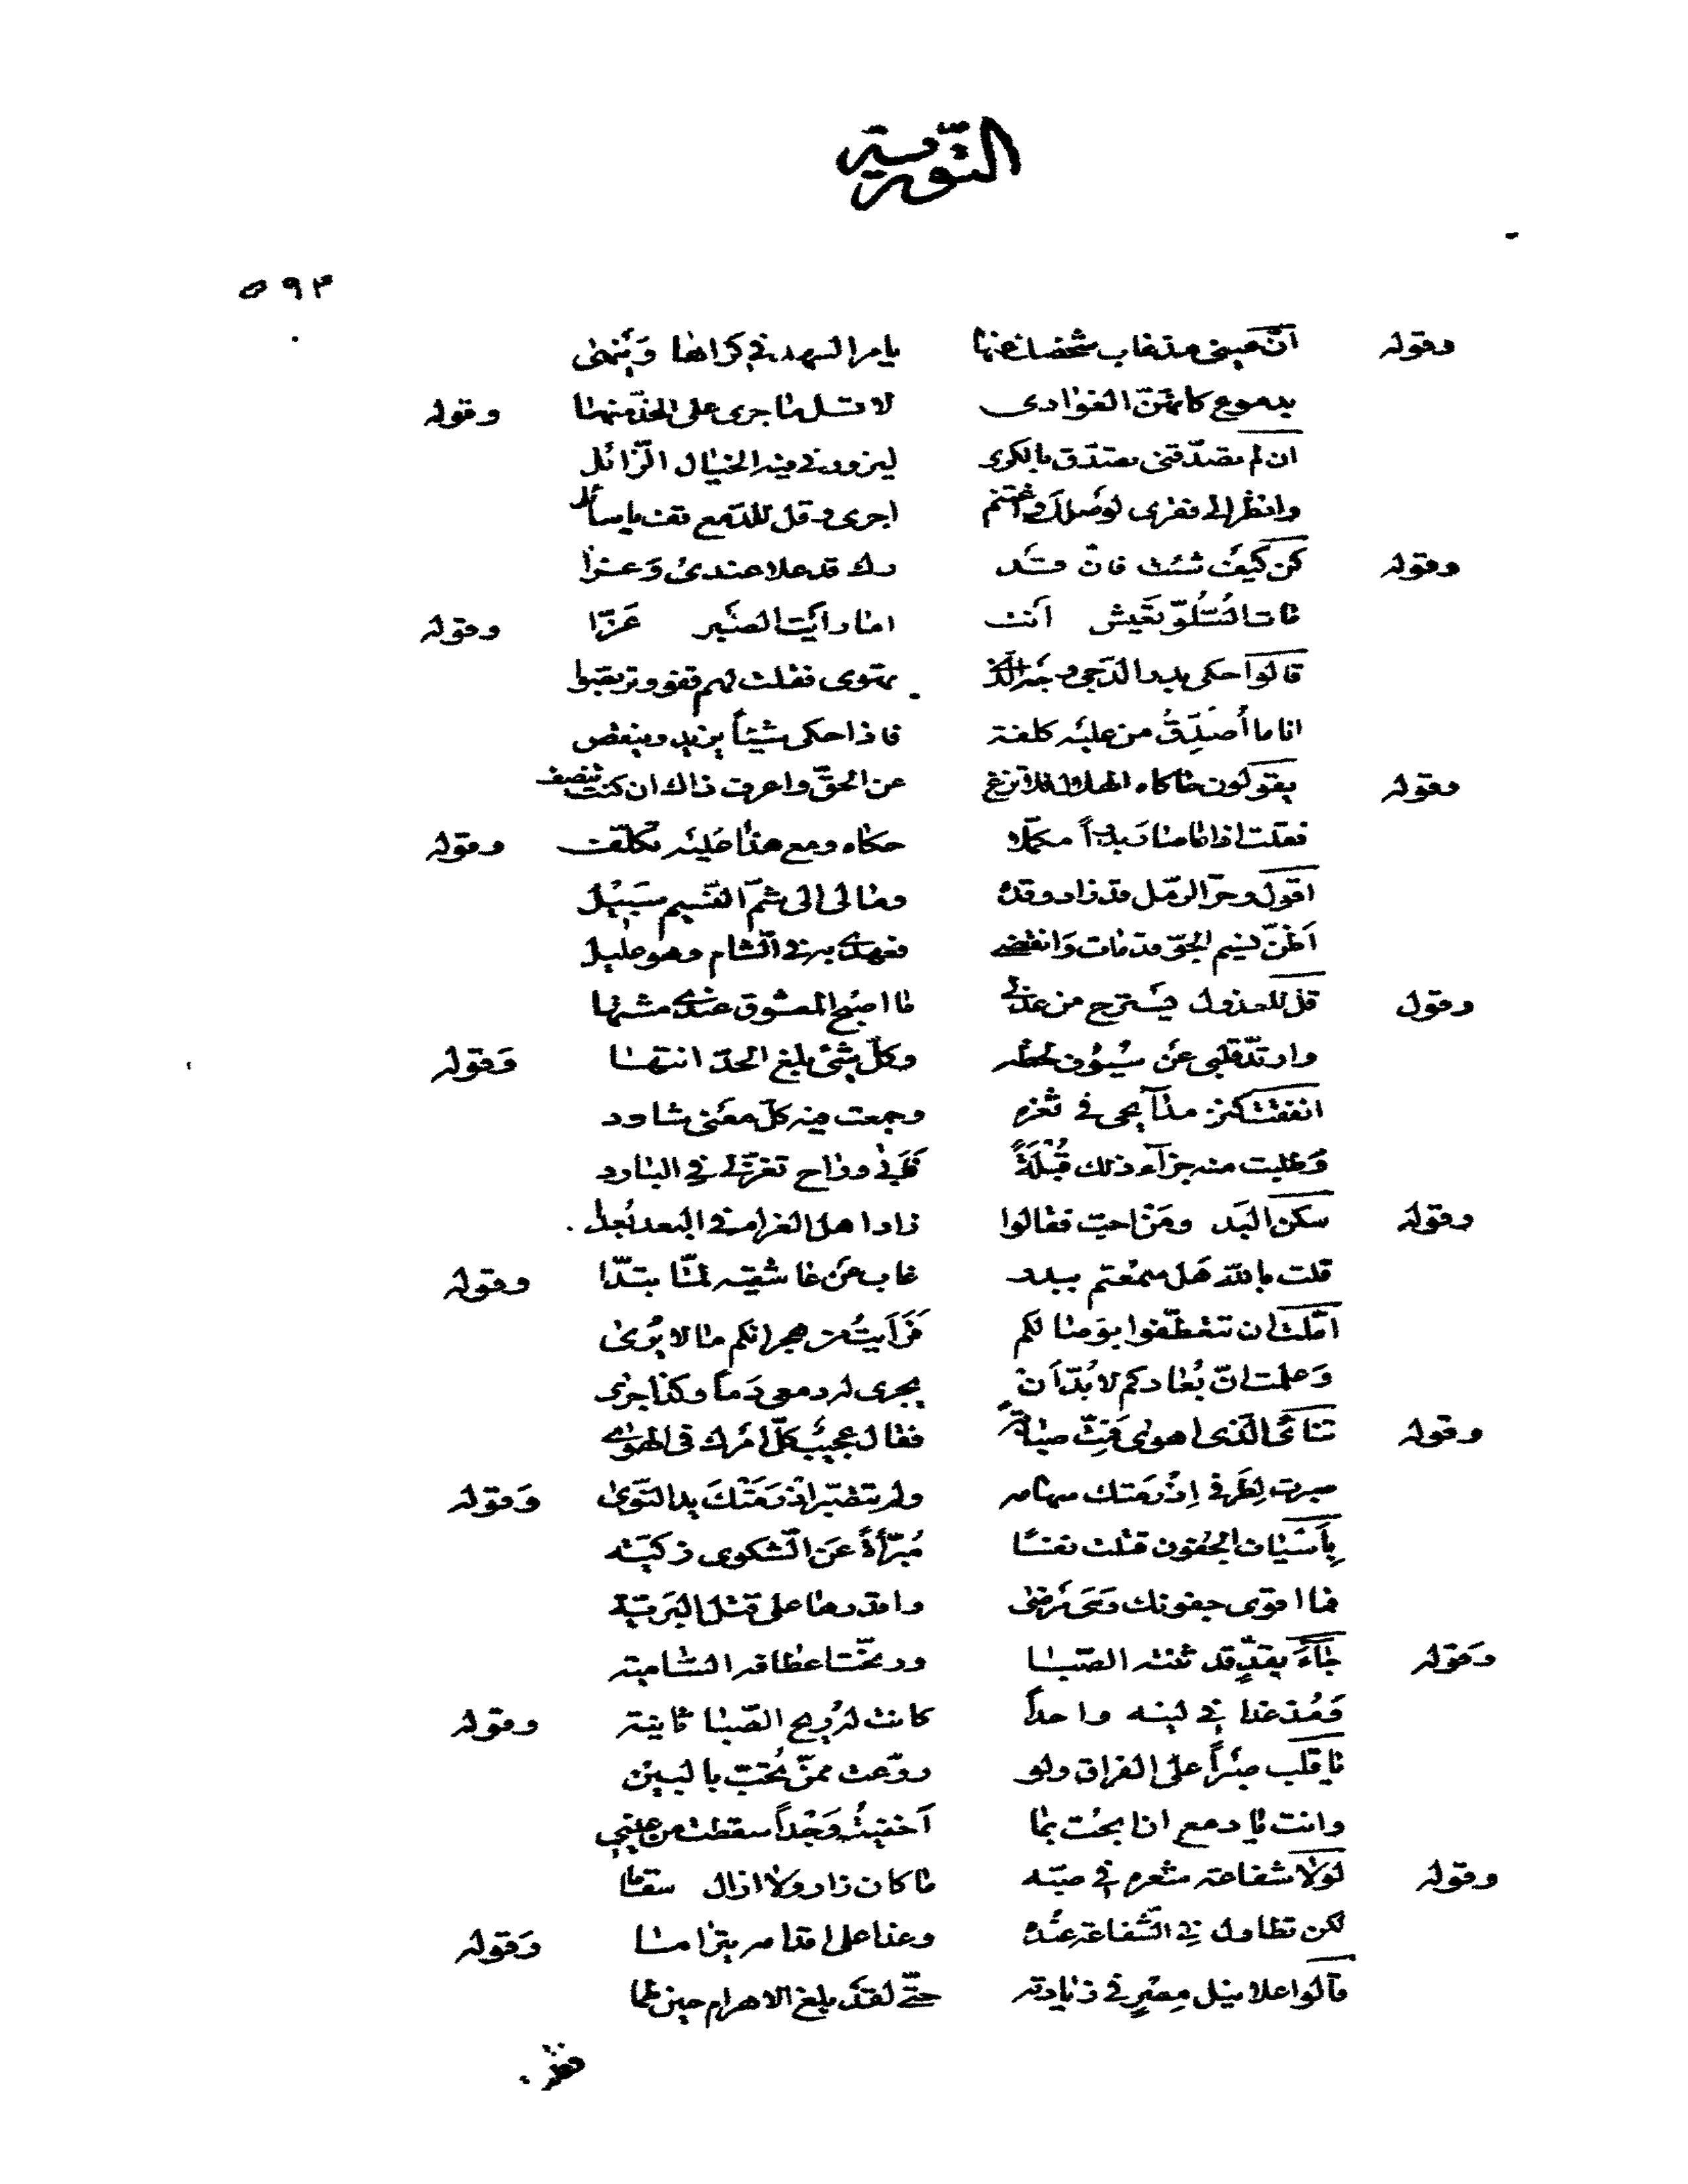 التورية
٥٩٣
وقوله ان عيني مذ غاب شخصك عنها يامر السهد في كراها وينهى
بدموع كانهن الغوادى لا تسل ما جرى على الخد منها وقوله
ان لم تصدقنى تصدق بالكرى ليزورنى فيه الخيال الزائل
وانظر الى فقرى لوصلك واغتنم اجرى وقل للدمع قف يا سائل
وقوله كن كيف شئت فان قد رك قد علا عندى وعزا
مات السلو تعيش انت اما رايت الصبر عزا وقوله
قالوا حكى بدر الدجى وجه الذ يهوى فقلت لهم قفو وتربصوا
انا ما أصدق من عليه كلفة فاذا حكى شيئاً يزيد وينقص
وقوله يقولون حاكاه الهلال فلا تزغ عن الحق واعرف ذاك ان كنت تنصف
فقلت اذا ما صار بدراً مكملا حكاه ومع هذا عليه تكلف وقوله
اقول وحر الرمل قد زاد وقده ومالى الى شم النسيم سبيل
أظن نسيم الجو قد مات وانقضى فعهدى به فى الشام وهو عليل
وقول قل للعذول يسترح من عذلى ما اصبح المعشوق عندى مشتهى
وارتد قلبى عن سيوف لحظه وكل شئ بلغ الحد انتهى وقوله
انفقت كنز مدآيحى في ثغره وجمعت فيه كل معنى شارد
وطلبت منه جزآء ذلك قُبْلَةً فأبى وراح تغزلى في البارد
وقوله سكن البدر ومن احب فقالوا زاد اهل الغرام فى البعد بعدا
قلت بالله هل سمعتم ببدر غاب عن عاشقيه لما تبدّا وقوله
امّلت ان تتعطّفوا بوصالكم فرأيت من هجرانكم ما لا يُرى
وعلمت انّ بُعادكم لا بُدّ ان يجرى له دمعى دماً وكذا جرى
وقوله تناءى الّذى اهوى فمتّ صبابة فقال عجيب كلّ امرك فى الهوى
صبرت لطرفى اذ رمتك سهامه ولم تصبر اذ رمتك يد النوى وقوله
بأسياف الجفون قتلت نفسًا مُبرّأةً عن الشكوى زكيّه
فما اقوى جفونك وهى مرضى واقدرها على قتل البريّة
وقوله جآء بقدٍّ قد ثنته الصّبا ورنّحت اعطافه الشاميه
ومُذ غدا في لينه واحداً كانت له ريح الصّبا ثانيه وقوله
يا قلب صبراً على الفراق ولو روّعت ممّن تحبّ بالبين
وانت يا دمع ان ابحت بما أخفيتُ وجْداً سقطت من عينى
وقوله لولا شفاعة شعره في صبّه ما كان زار ولا ازال سقاما
لكن تطاول فى الشفاعة عنده وغدا على اقدامه يترامى وقوله
قالوا علا نيل مصرٍ في زيادته حتّى لقد بلغ الاهرام حين طما
فقلت